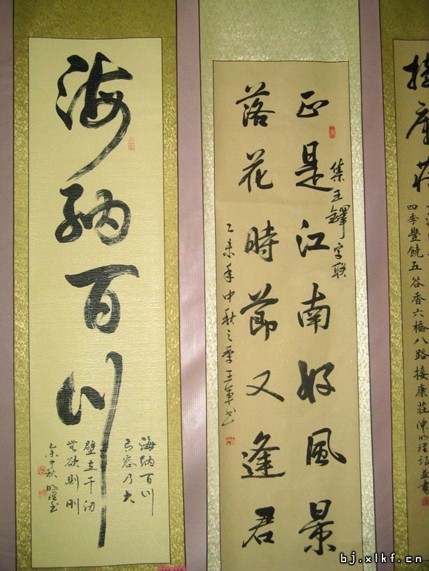 接康莊
四季豐饒五谷香六橋八路接康莊
正是江南好風景
集王鐸字聯
落花時節又逢君
乙未年中秋之季王軍书
海納百川
海納百川
有容乃大
壁立千仞
無欲則剛
乙未中秋
bj.xlkf.cn